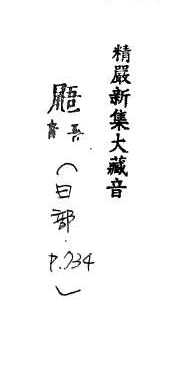 精嚴新集大藏音
𣈱
音吾
(日部.
P.034)